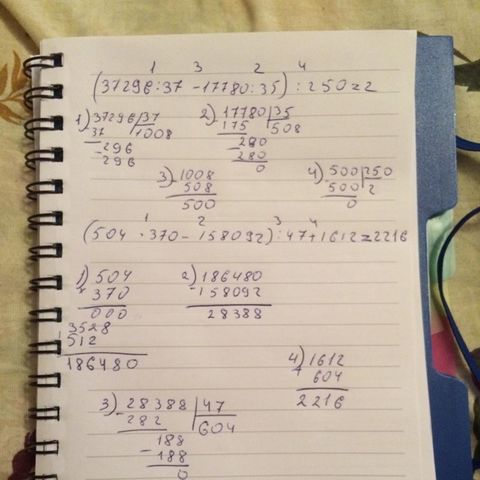 1 3 2 4
(37296:37 - 17780:35) : 250=2
1) 37296 | 37
37 | 1008
- 296
296
2) - 17780 | 35
175 | 508
- 280
280
0
3) - 1008
508
500
4) - 500 | 250
500 | 2
0
1 2 3 4
(504 · 370 - 158092) : 47 + 1612 = 2216
1) 504
× 370
000
3528
512
186480
2) 186480
- 158092
28388
3) - 28388 | 47
282 | 604
188
- 188
0
4) 1612
+ 604
2216